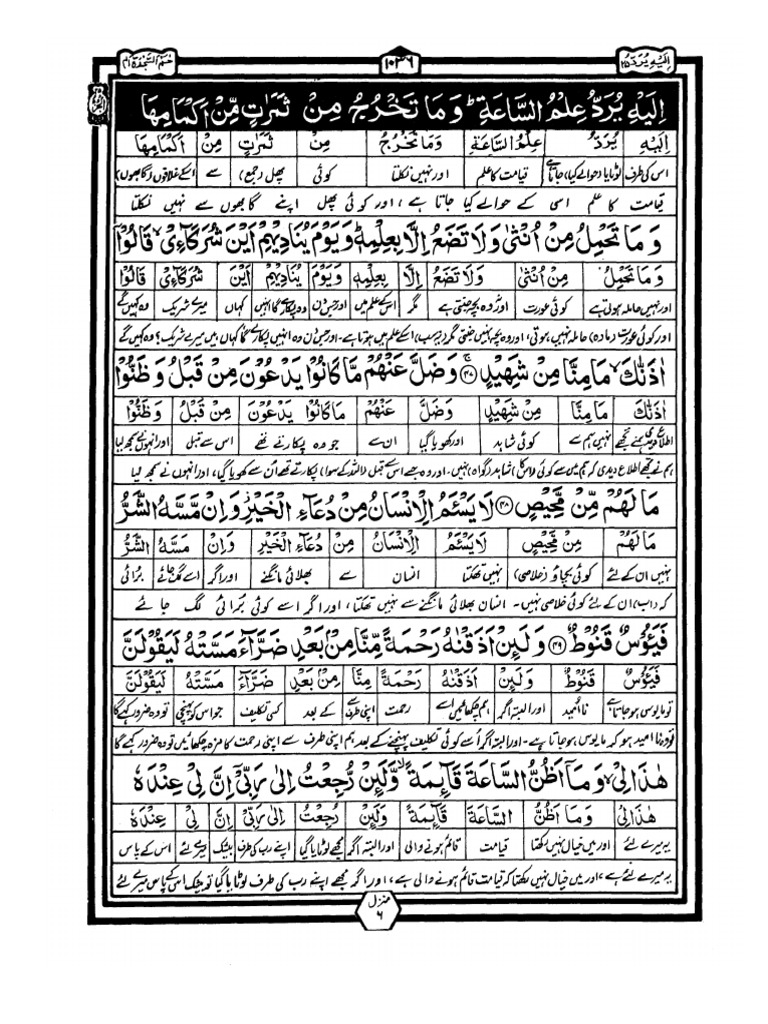 اِلَیْهِ یُرَدُّ ۲۵
۱۰۳۶
حٰمٓ السَّجْدَة ۴۱
اِلَیْهِ یُرَدُّ عِلْمُ السَّاعَةِ ؕ وَ مَا تَخْرُجُ مِنْ ثَمَرٰتٍ مِّنْ اَكْمَامِهَا
اِلَیْهِ یُرَدُّ عِلْمُ السَّاعَةِ وَمَا تَخْرُجُ مِنْ ثَمَرٰتٍ مِنْ اَكْمَامِهَا
اس کی طرف لوٹایا (حوالے کیا) جاتا ہے قیامت کا علم اور نہیں نکلتا کوئی پھل (جمع) سے اسکے غلافوں (گابھوں)
قیامت کا علم اسی کے حوالے کیا جاتا ہے، اور کوئی پھل اپنے گابھوں سے نہیں نکلتا
وَ مَا تَحْمِلُ مِنْ اُنْثٰی وَلَا تَضَعُ اِلَّا بِعِلْمِهٖ ؕ وَ یَوْمَ یُنَادِیْهِمْ اَیْنَ شُرَكَآءِیْ ۙ قَالُوْۤا
وَمَا تَحْمِلُ مِنْ اُنْثٰی وَلَا تَضَعُ اِلَّا بِعِلْمِهٖ وَیَوْمَ یُنَادِیْهِمْ اَیْنَ شُرَكَآءِیْ قَالُوْۤا
اور نہیں حاملہ ہوتی ہے کوئی عورت اور نہ وہ بچہ جنتی ہے مگر اس کے علم میں اور جس دن وہ پکارے گا انہیں کہاں میرے شریک وہ کہیں گے
اور کوئی عورت (مادہ) حاملہ نہیں ہوتی، اور وہ بچہ نہیں جنتی مگر (یہ سب) اسکے علم میں ہوتا ہے۔ اور جس دن وہ انہیں پکارے گا کہاں ہیں میرے شریک؟ وہ کہیں گے
اٰذَنّٰكَ ۙ مَا مِنَّا مِنْ شَهِیْدٍ ۚ﴿۴۷﴾ وَضَلَّ عَنْهُمْ مَّا كَانُوْا یَدْعُوْنَ مِنْ قَبْلُ وَ ظَنُّوْا
اٰذَنّٰكَ مَا مِنَّا مِنْ شَهِیْدٍ وَضَلَّ عَنْهُمْ مَا كَانُوْا یَدْعُوْنَ مِنْ قَبْلُ وَظَنُّوْا
اطلاع دیدی ہم نے تجھے نہیں ہم سے کوئی شاہد اور کھویا گیا ان سے جو وہ پکارتے تھے اس سے قبل اور انہوں نے سمجھ لیا
ہم نے تجھے اطلاع دیدی کہ ہم میں سے کوئی شاہد (گواہ) نہیں۔ اور وہ جسے اس سے قبل (اللہ کے سوا) پکارتے تھے اُن سے کھویا گیا، اور انہوں نے سمجھ لیا
مَا لَهُمْ مِّنْ مَّحِیْصٍ ﴿۴۸﴾ لَا یَسْـَٔمُ الْاِنْسَانُ مِنْ دُعَآءِ الْخَیْرِ ؗ وَ اِنْ مَّسَّهُ الشَّرُّ
مَا لَهُمْ مِنْ مَّحِیْصٍ لَا یَسْـَٔمُ الْاِنْسَانُ مِنْ دُعَآءِ الْخَیْرِ وَاِنْ مَسَّهُ الشَّرُّ
نہیں ان کے لئے کوئی بچاؤ (خلاصی) نہیں تھکتا انسان سے بھلائی مانگنے اور اگر اسے لگ جائے بُرائی
کہ (اب) ان کے لئے کوئی خلاصی نہیں۔ انسان بھلائی مانگنے سے نہیں تھکتا، اور اگر اسے کوئی بُرائی لگ جائے
فَیَـُٔوْسٌ قَنُوْطٌ ﴿۴۹﴾ وَ لَىِٕنْ اَذَقْنٰهُ رَحْمَةً مِّنَّا مِنْۢ بَعْدِ ضَرَّآءَ مَسَّتْهُ لَیَقُوْلَنَّ
فَیَـُٔوْسٌ قَنُوْطٌ وَلَىِٕنْ اَذَقْنٰهُ رَحْمَةً مِنَّا مِنْۢ بَعْدِ ضَرَّآءَ مَسَّتْهُ لَیَقُوْلَنَّ
تو مایوس ہو جاتا ہے نا امید اور البتہ اگر ہم چکھائیں اسے رحمت اپنی طرف سے کے بعد کسی تکلیف جو اس کو پہنچی تو وہ ضرور کہے گا
نا امید ہو کر مایوس ہو جاتا ہے۔ اور البتہ اگر اُسے کوئی تکلیف پہنچنے کے بعد ہم اپنی طرف سے اپنی رحمت کا مزہ چکھائیں تو وہ ضرور کہے گا
هٰذَا لِیْ ۙ وَ مَاۤ اَظُنُّ السَّاعَةَ قَآىِٕمَةً ۙ وَّ لَىِٕنْ رُّجِعْتُ اِلٰی رَبِّیْۤ اِنَّ لِیْ عِنْدَهٗ
هٰذَا لِیْ وَمَاۤ اَظُنُّ السَّاعَةَ قَآىِٕمَةً وَلَىِٕنْ رُجِعْتُ اِلٰی رَبِّیْ اِنَّ لِیْ عِنْدَهٗ
یہ میرے لئے اور میں خیال نہیں رکھتا قیامت قائم ہونے والی اور البتہ اگر مجھے لوٹایا گیا اپنے رب کی طرف بیشک میرے لئے اس کے پاس
یہ میرے لئے ہے، اور میں خیال نہیں رکھتا کہ قیامت قائم ہونے والی ہے، اور اگر مجھے اپنے رب کی طرف لوٹایا گیا تو بیشک اسکے پاس میرے لئے
منزل
۶